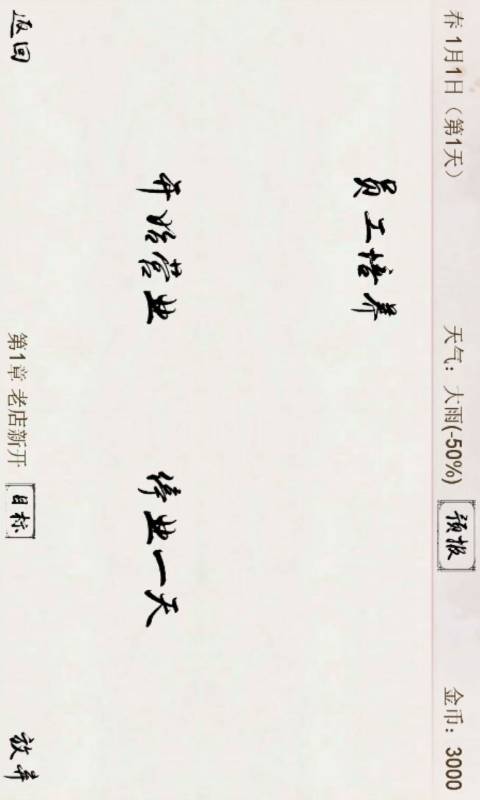 春1月1日（第1天）
天气：大雨(-50%)
预报
金币：3000
员工培养
开始营业
停业一天
返回
第1章 老店新开
目标
放弃